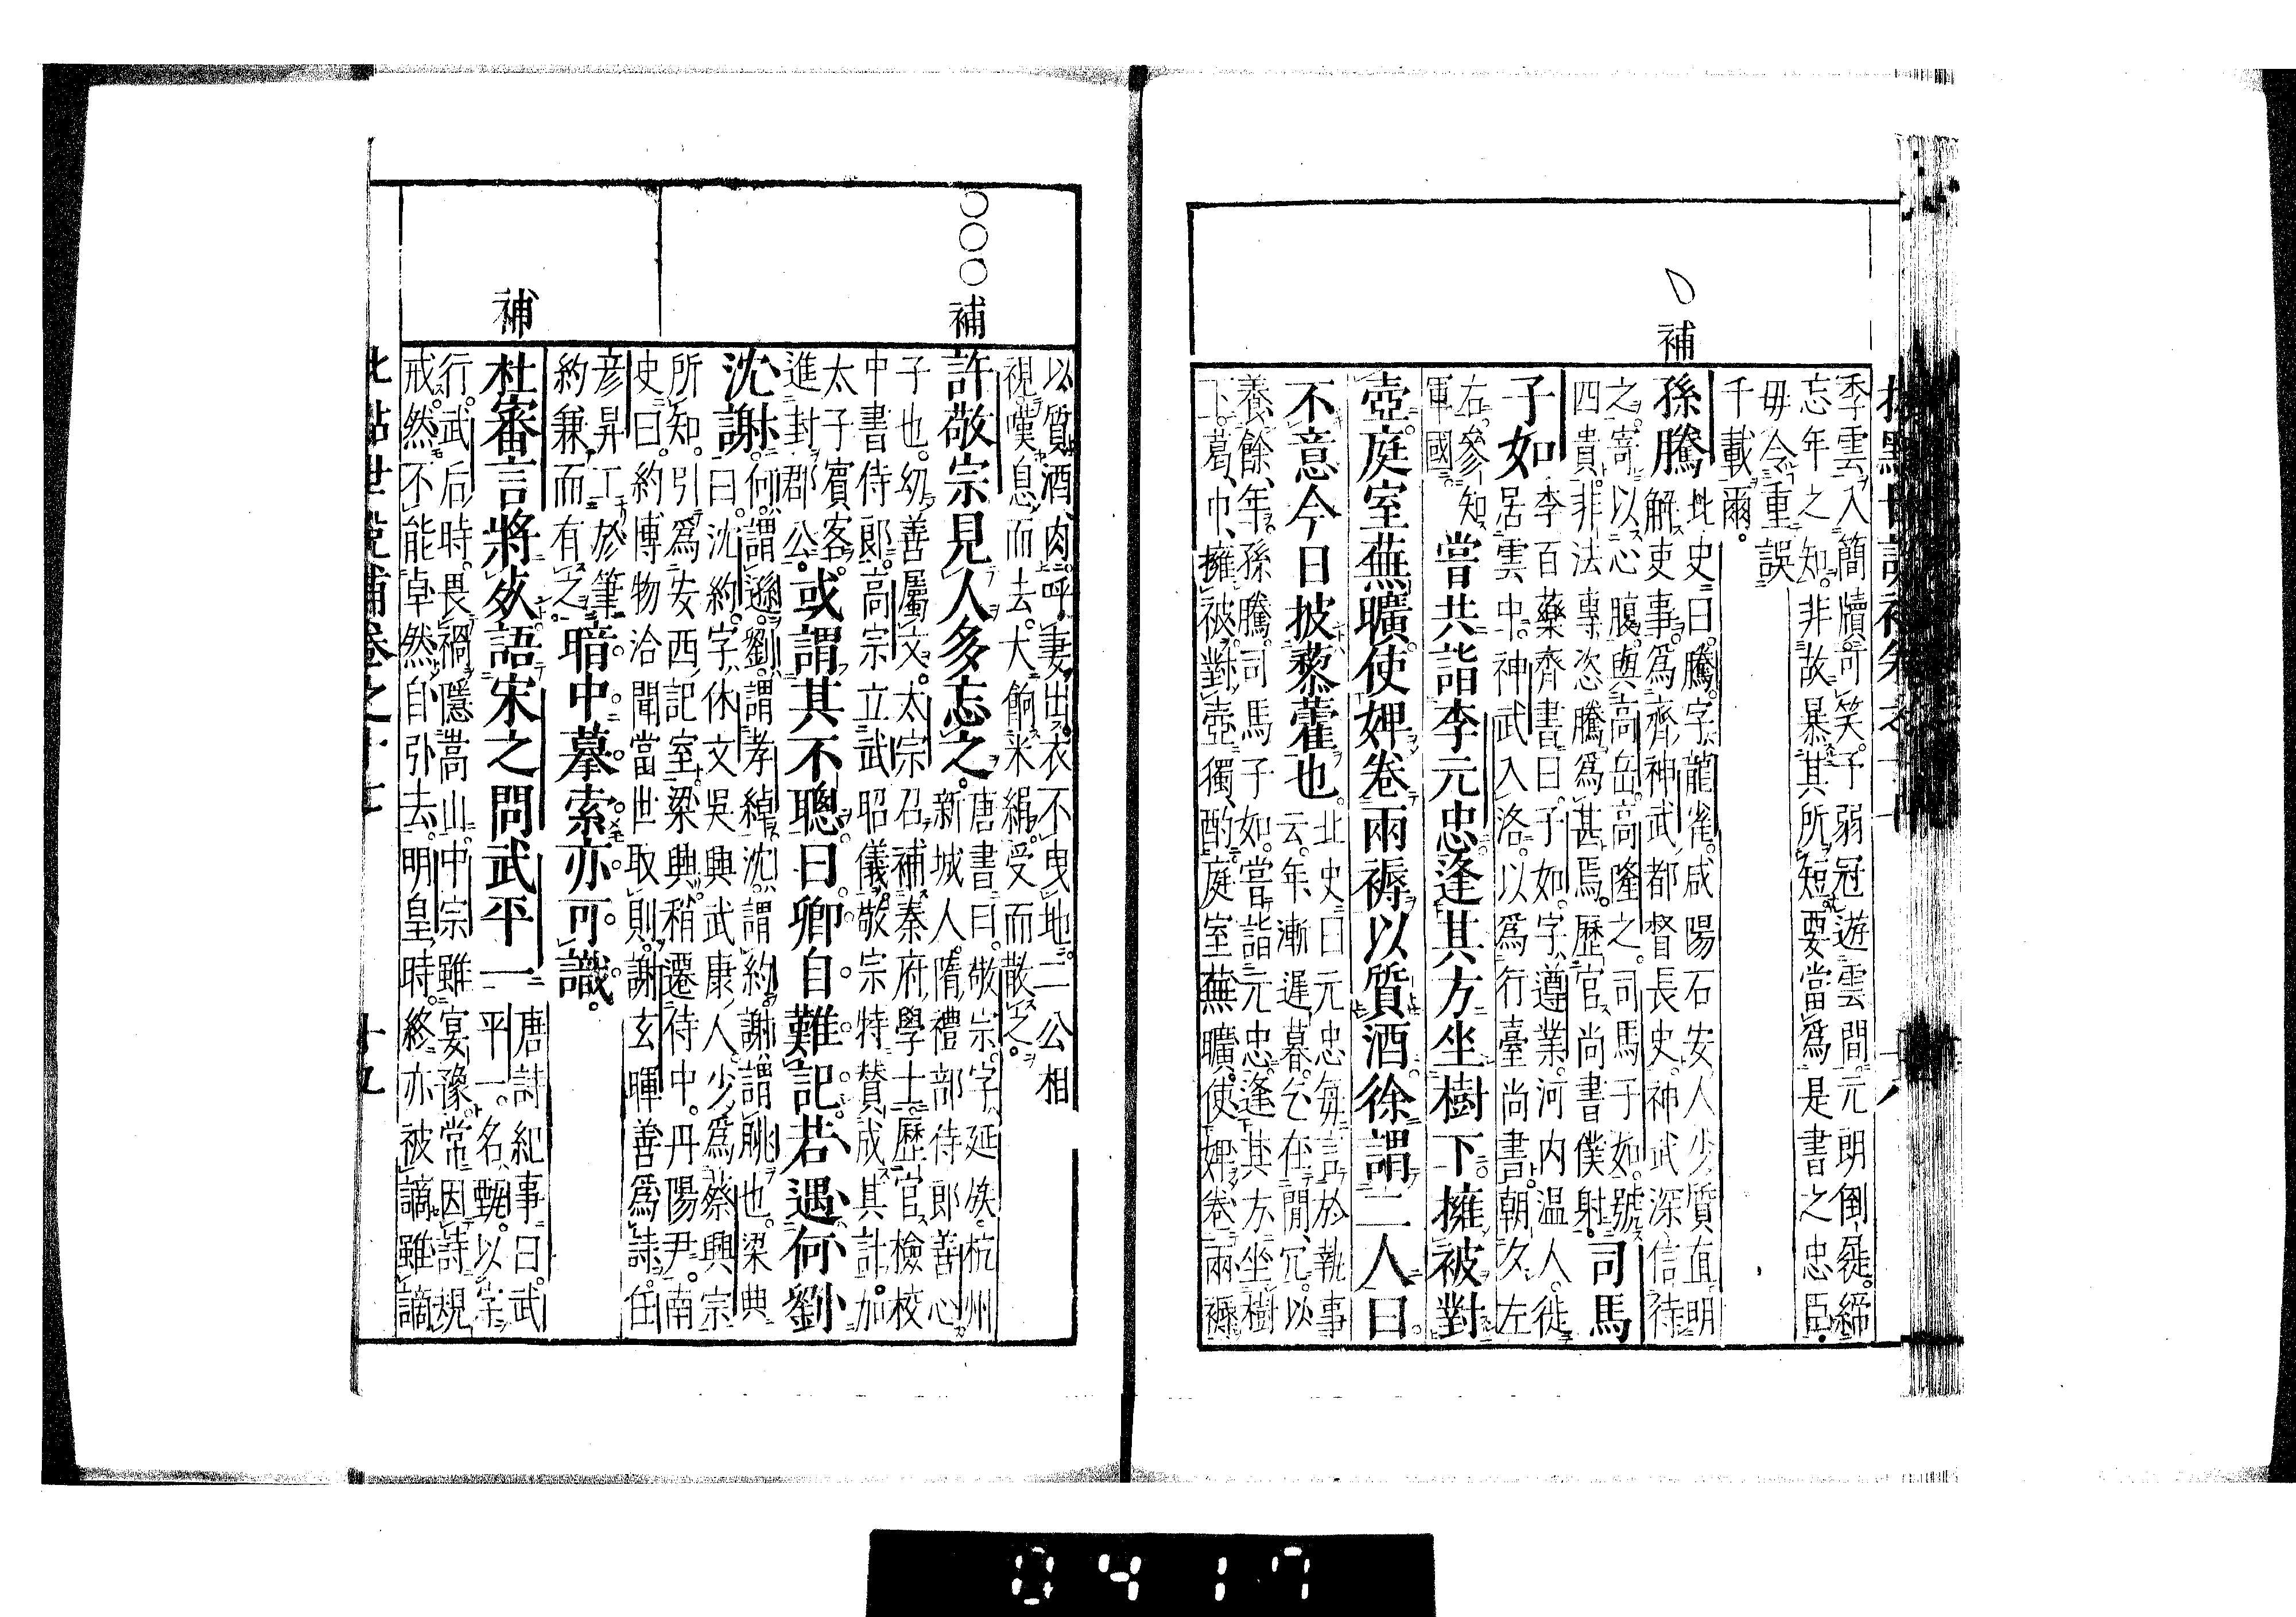 批點世說補卷之十七
季雲入簡牘可笑子弱冠遊雲間元朗倒屣締
忘年之知非故暴其所短要當爲是書之忠臣
毋令重誤
千載爾
補
孫騰
北史曰騰字龍雀咸陽石安人少質直明
解吏事爲齊神武都督長史神武深信待
之寄以心腹與高岳高隆之司馬子如號
四貴非法專恣騰爲甚焉歷官尚書僕射
司馬
子如
李百藥齊書曰子如字遵業河内温人徙
居雲中神武入洛以爲行臺尚書朝夕左
右參知
軍國
嘗共詣李元忠逢其方坐樹下擁被對
壺庭室蕪曠使婢卷兩褥以質酒徐謂二人曰
不意今日披藜藿也
北史曰元忠每言於執事
云年漸遲暮乞在閒冗以
養餘年孫騰司馬子如嘗詣元忠逢其方坐樹
下葛巾擁被對壺獨酌庭室蕪曠使婢卷兩褥
以質酒肉呼妻出衣不曳地二公相
視嘆息而去大餉米絹受而散之
○○○補
許敬宗見人多忘之
唐書曰敬宗字延族杭州
新城人隋禮部侍郎善心
子也幼善屬文太宗召補秦府學士歷官檢校
中書侍郎高宗立武昭儀敬宗特贊成其計加
太子賓客
進封郡公
或謂其不聰曰卿自難記若遇何劉
沈謝
何謂遜劉謂孝綽沈謂約謝謂朓也梁典
曰沈約字休文吳興武康人少爲蔡興宗
所知引爲安西記室梁興稍遷侍中丹陽尹南
史曰約博物洽聞當世取則謝玄暉善爲詩任
彥昇工於筆
約兼而有之
暗中摹索亦可識
補
杜審言將死語宋之問武平一
唐詩紀事曰武
平一名甄以字
行武后時畏禍隱嵩山中宗雖宴豫常因詩規
戒然不能卓然自引去明皇時終亦被謫雖謫
批點世說補卷之十七
十九
0417